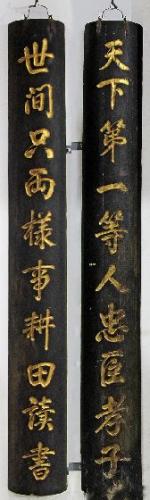 天下第一等人忠臣孝子
世间只两様事耕田讀書